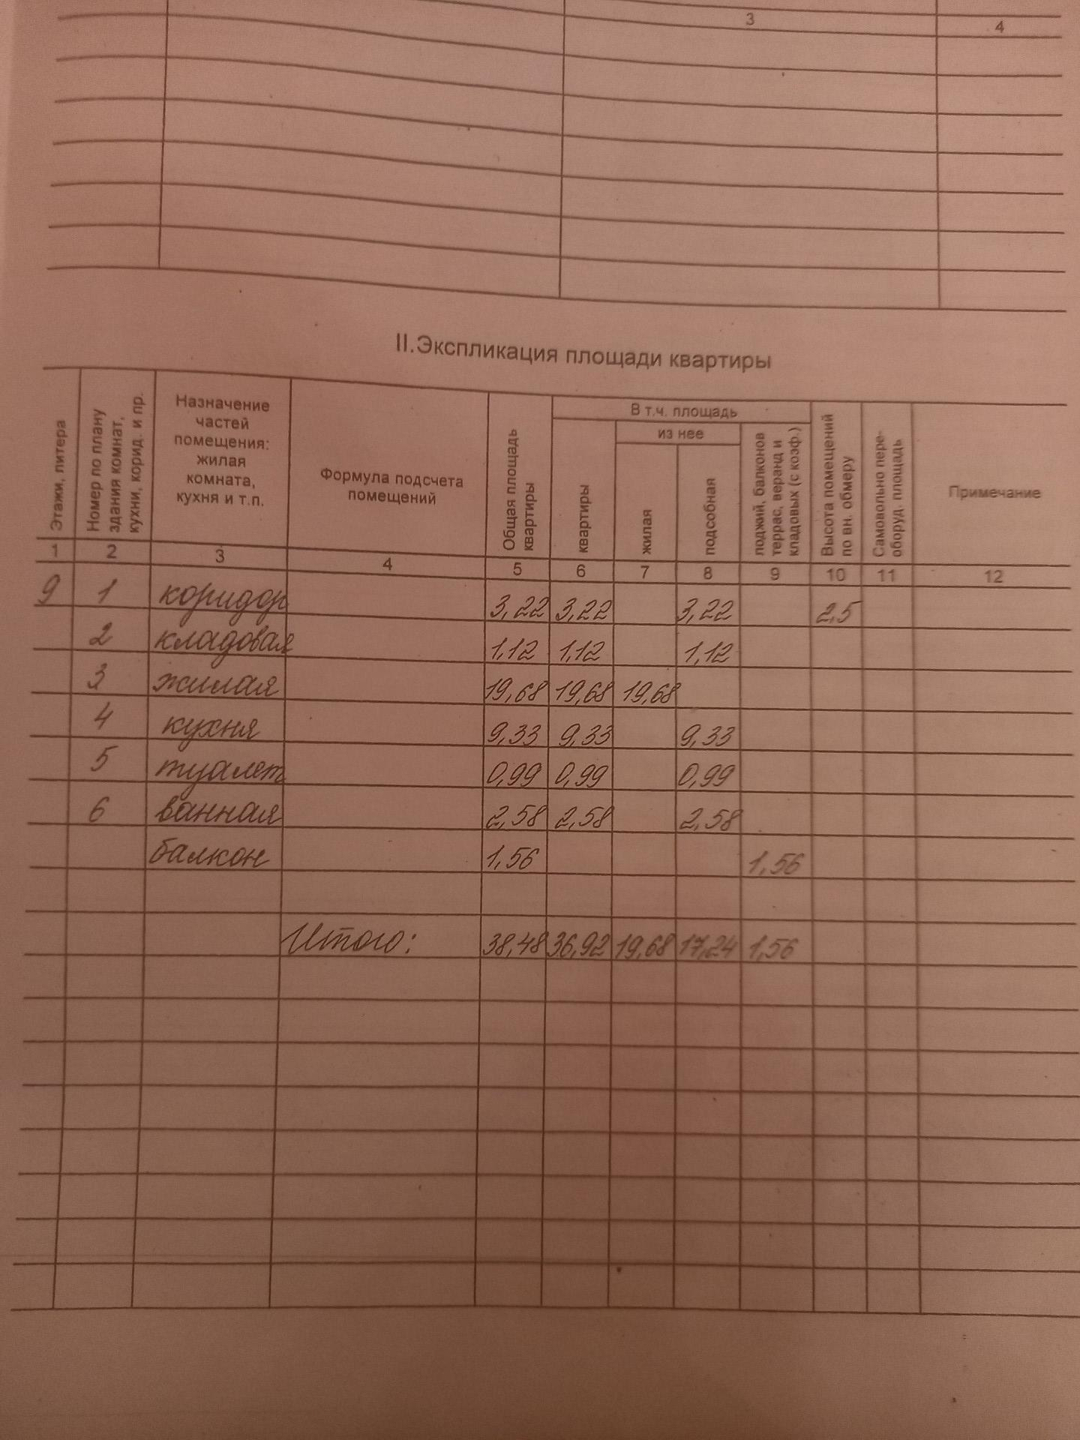 3 4
II.Экспликация площади квартиры
Этажи, литера
Номер по плану здания комнат, кухни, корид. и пр.
Назначение
частей
помещения:
жилая
комната,
кухня и т.п.
Формула подсчета
помещений
Общая площадь квартиры
В т.ч. площадь
из нее
квартиры
жилая
подсобная
лоджий, балконов террас, веранд и кладовых (с коэф.)
Высота помещений по вн. обмеру
Самовольно пере- оборуд. площадь
Примечание
1 2 3 4 5 6 7 8 9 10 11 12
9 1 коридор 3,22 3,22 3,22 2,5
2 кладовая 1,12 1,12 1,12
3 жилая 19,68 19,68 19,68
4 кухня 9,33 9,33 9,33
5 туалет 0,99 0,99 0,99
6 ванная 2,58 2,58 2,58
балкон 1,56 1,56
Итого: 38,48 36,92 19,68 17,24 1,56